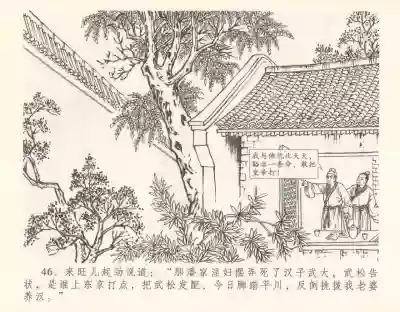 我与他仇比天大，
豁出一条命，敢把
皇帝打！
46、来旺儿起劲说道：“那潘家淫妇摆弄死了汉子武大，武松告
状，是谁上东京打点，把武松发配，今日脚踏平川，反倒挑拨我老婆
养汉；”